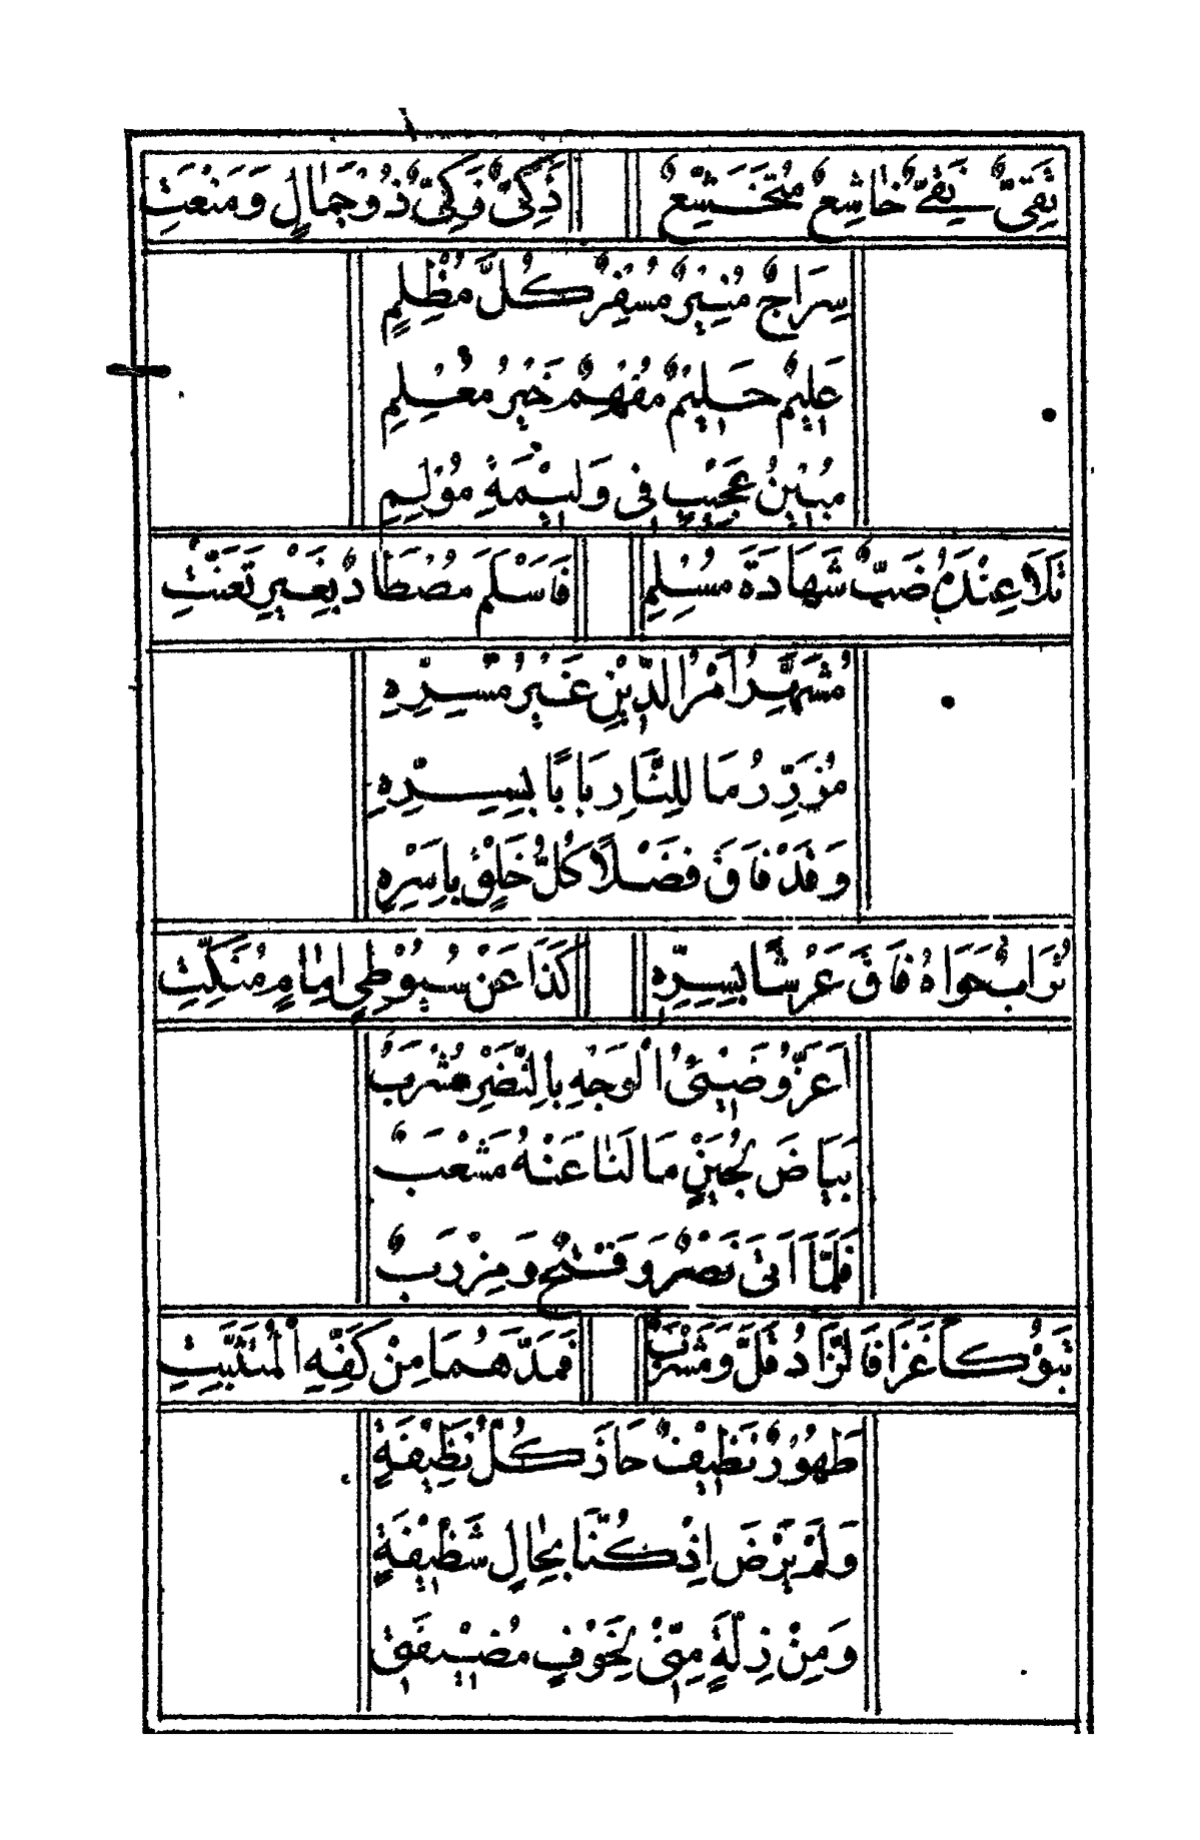 تَقِيٌّ نَقِيٌّ خَاشِعٌ مُتَخَشِّعٌ ذَكِيٌّ وَزَكِيٌّ ذُو جَمَالٍ وَمَنْعَتِ
سِرَاجٌ مُنِيرٌ مُسْفِرٌ كُلَّ مُظْلِمٍ
عَلِيمٌ حَلِيمٌ مُفْهِمٌ خَيْرُ مُعْلِمِ
مُبِينُ عَجِيبٍ فِي وَلِيْمَةِ مُوْلِمِ
تَلَا عِنْدَهُ ضَبٌّ شَهَادَةَ مُسْلِمٍ فَاَسْلَمَ مُصْطَادٌ بِغَيْرِ تَعَنُّتِ
مُشَهِّرُ اَمْرِ الدِّيْنِ غَيْرُ مُسِرِّهِ
مُزَرِّرُ مَا لِلنَّارِ بَابًا بِسِرِّهِ
وَقَدْ فَاقَ فَضْلًا كُلَّ خَلْقٍ بِاَسْرِهِ
تُرَابٌ حَوَاهُ فَاقَ عَرْشًا بِسِرِّهِ كَذَا عَنْ سُيُوْطِي اِمَامٍ مُنَكِّتِ
اَعَزُّ وَضِيْئُ الْوَجْهِ بِالنَّضْرِ مُشْرَبُ
بَيَاضَ لُجَيْنٍ مَا لَنَا عَنْهُ مَشْعَبٌ
فَلَمَّا اَتَى نَصْرٌ وَفَتْحٌ وَمِزْرَبٌ
تَبُوْكًا غَزَا فَالزَّادُ قَلَّ وَمَشْرَبٌ فَمَدَّهُمَا مِنْ كَفِّهِ الْمُتَثَبِّتِ
طَهُورٌ نَظِيْفٌ حَاذَ كُلَّ نَظِيْفَةٍ
وَلَمْ يَرْضَ اِذْ كُنَّا بِحَالٍ شَظِيْفَةٍ
وَمِنْ زِلَّةٍ مِنِّيْ لِخَوْفٍ مُضِيْفَتِيْ